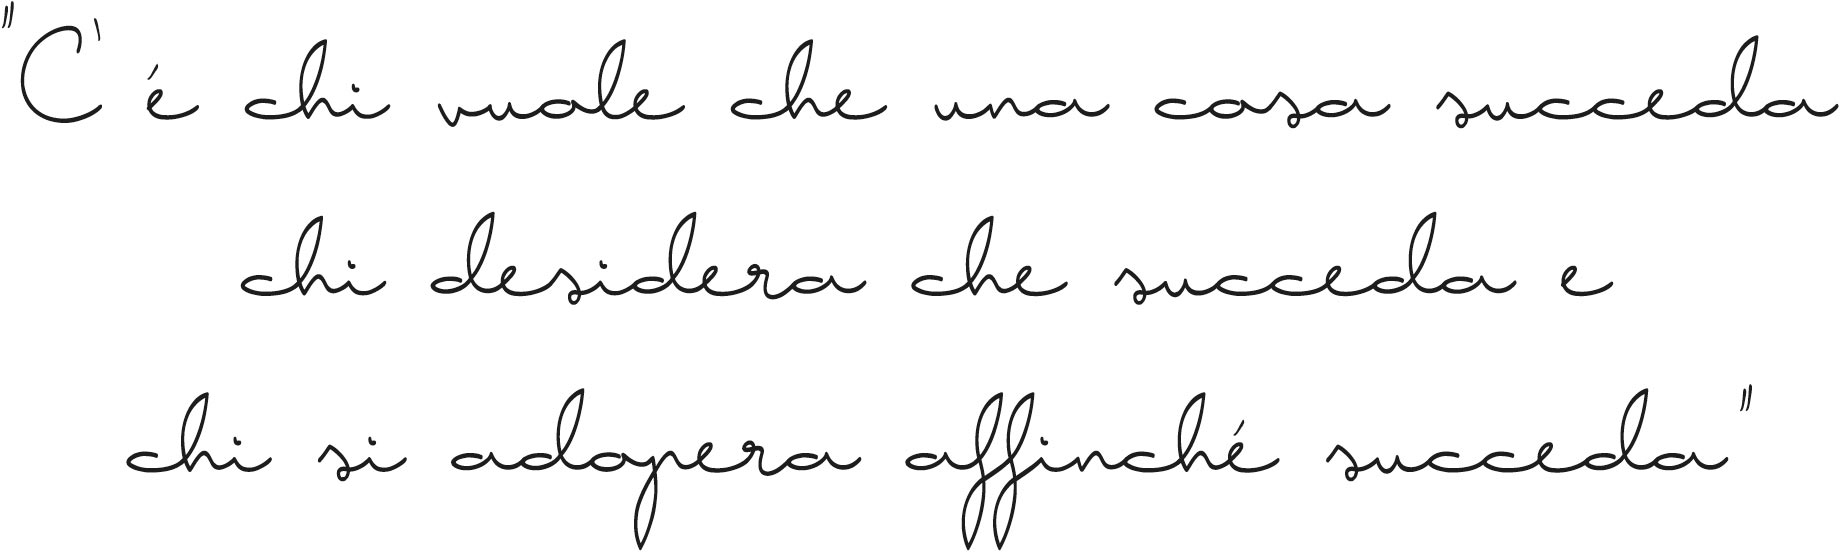 "C'é chi vuole che una cosa succeda
chi desidera che succeda e
chi si adopera affinché succeda"